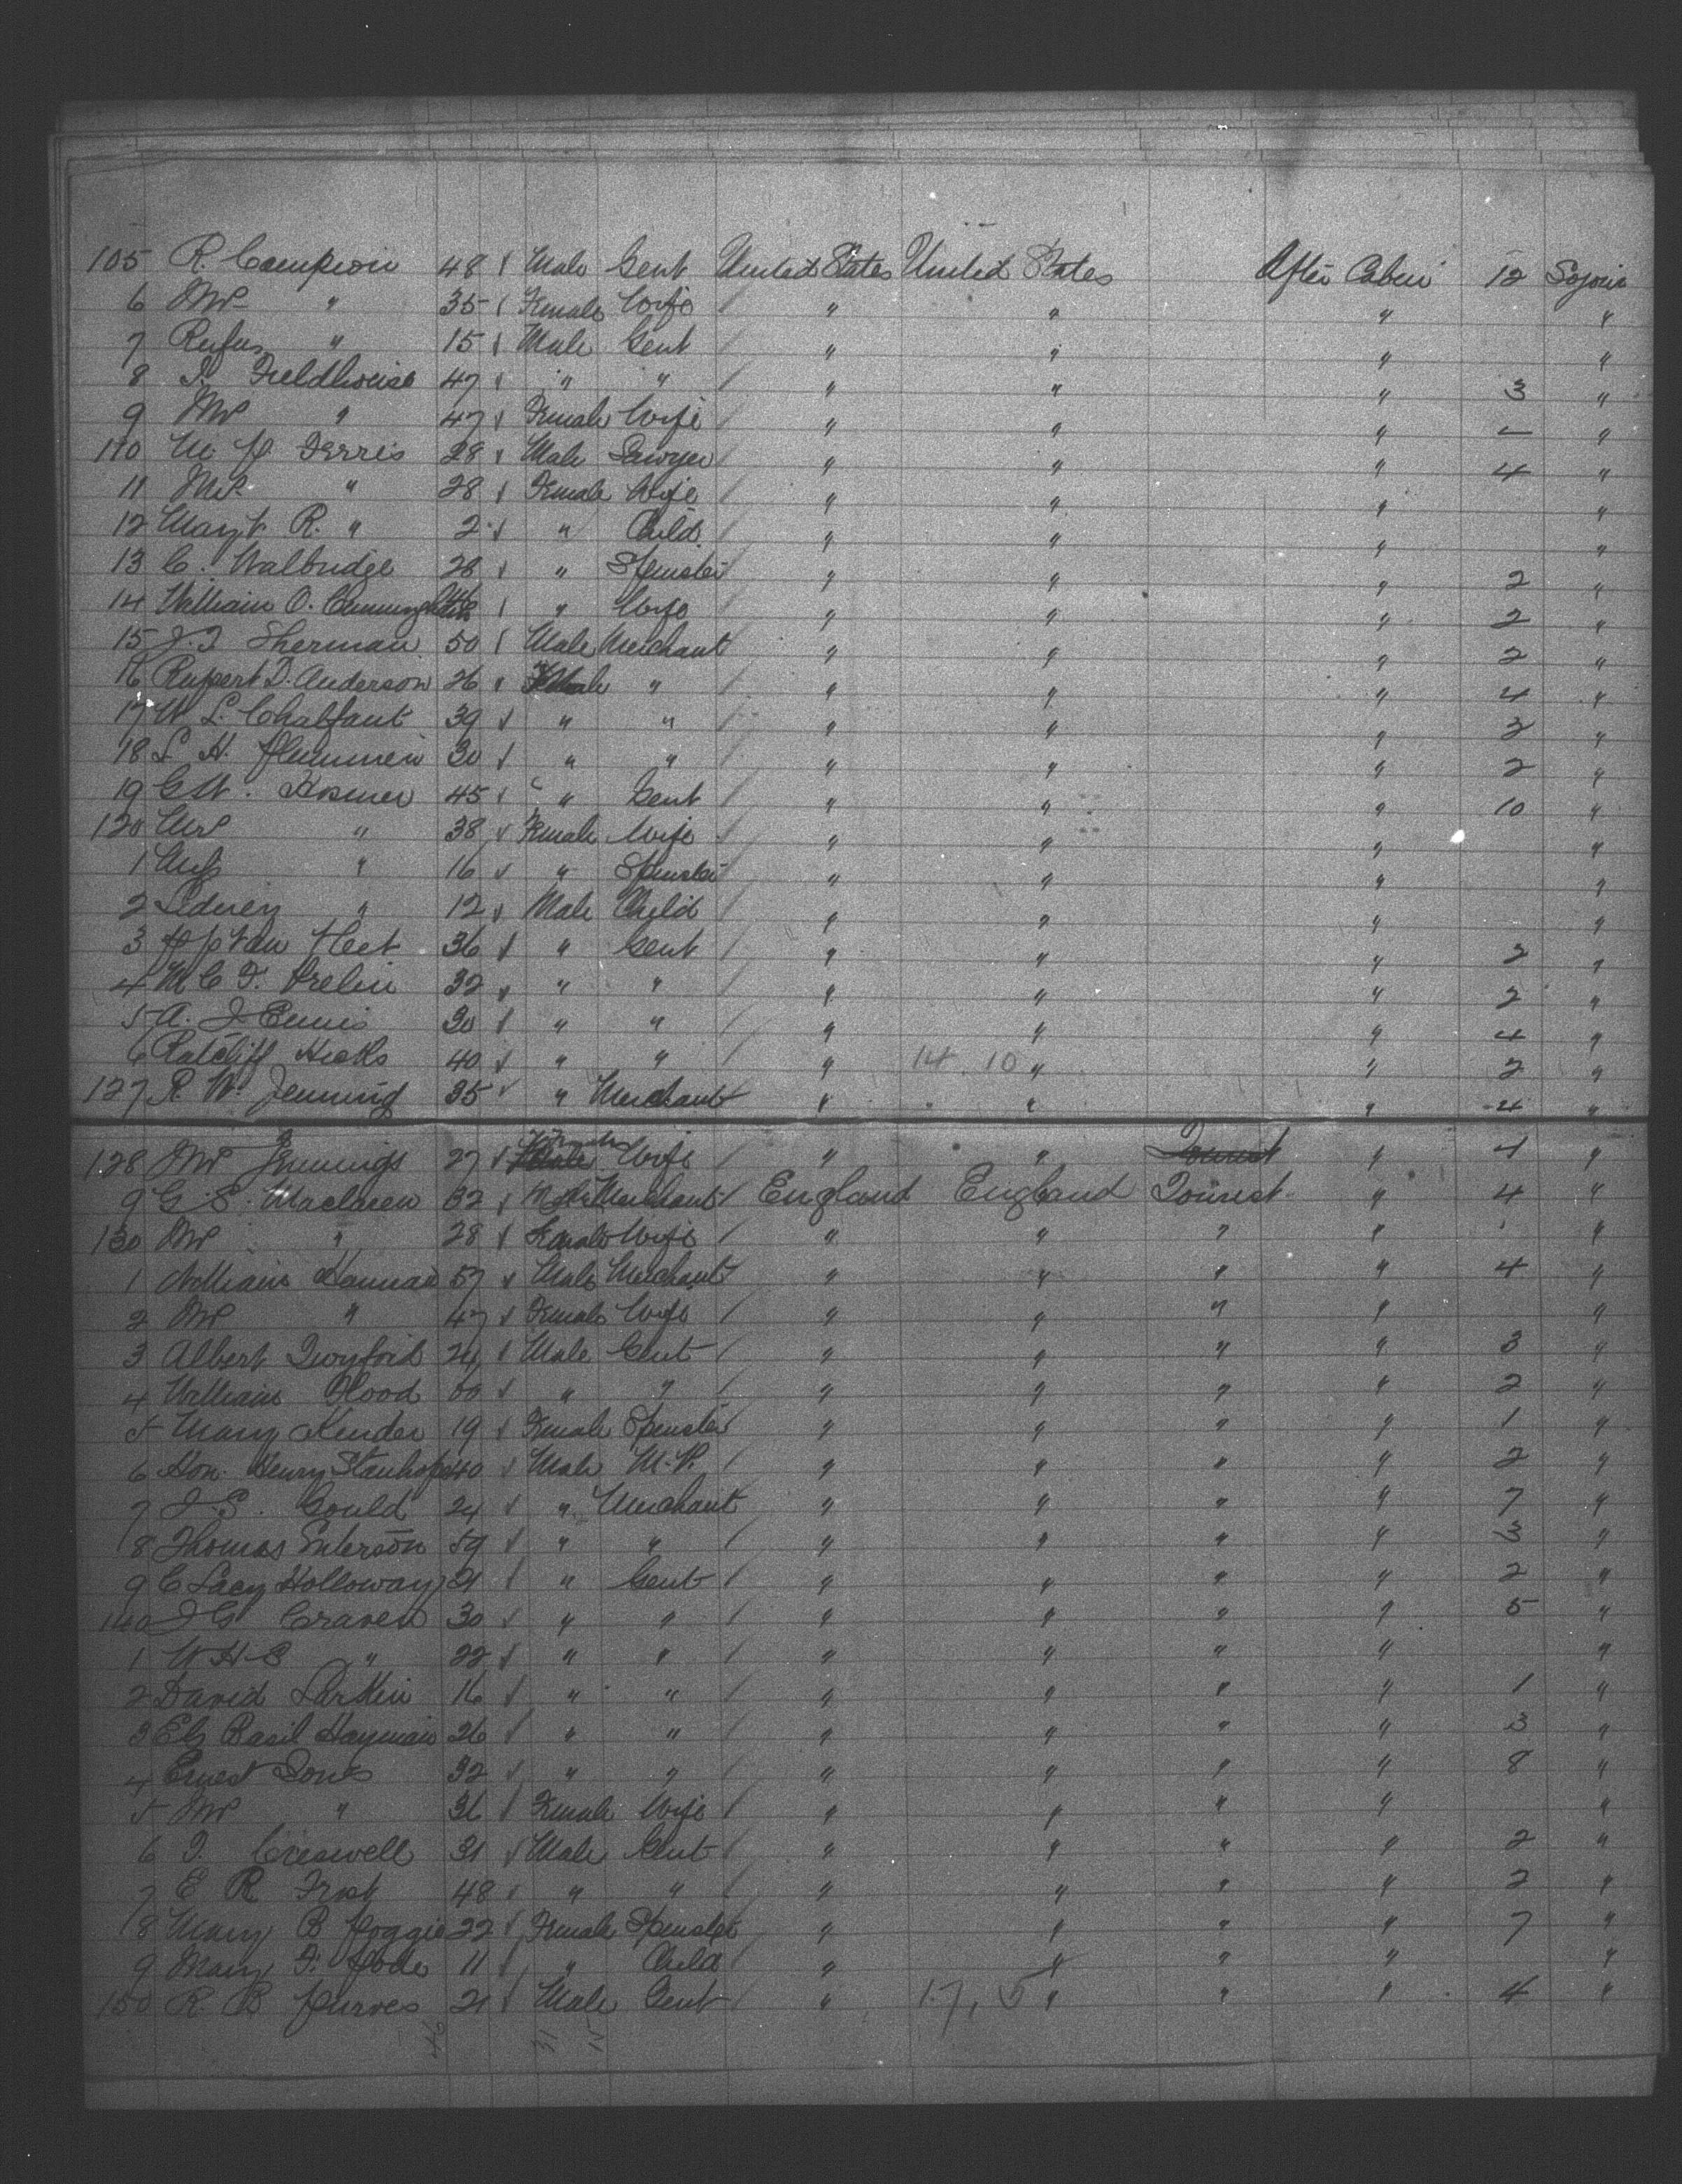 105 R. Campion 48 Male Gent United States United States After Cabin 12 Sojour
6 Mrs " 35 Female Wife " " " "
7 Rufus " 15 Male Gent " " " "
8 Fieldhouse 47 " " " " " 3 "
9 Mrs " 47 Female Wife " " " — "
110 Ferris 28 Male Lawyer " " " 4 "
11 Mrs " 28 Female Wife " " " "
12 R. " 2 " Child " " " "
13 C. Walbridge 28 " Spinster " " " 2 "
14 William O. " Wife " " " 2 "
15 J. Sherman 50 Male Merchant " " " 2 "
16 Rupert D. Anderson 26 Male " " " " 4 "
17 W. L. Chalfant 39 " " " " " 3 "
18 L H. 30 " " " " " 2 "
19 G W. Hosmer 45 " Gent " " " 10 "
120 Mrs " 38 Female Wife " " " "
1 Miss " 16 " Spinster " " " "
2 Sidney " 12 Male Child " " " "
3 Van Fleet 36 " Gent " " " 2 "
4 32 " " " " " 2 "
5 A. J Ennis 30 " " " " " 4 "
6 Ratcliff Hicks 40 " " " 14.10 " " 2 "
127 R. W. Jenning 35 " Merchant " " " 4 "
128 Mrs Jennings 27 Female Wife " " Tourist " 4 "
9 G. S. Maclaren 32 Male Merchant England England Tourist " 4 "
130 Mrs " 28 Female Wife " " " " "
1 William 57 Male Merchant " " " " 4 "
2 Mrs " 47 Female Wife " " " " "
3 Albert Twyford Male Gent " " " " 3 "
4 William Flood " " " " " " 2 "
5 Mary 19 Female Spinster " " " " 1 "
6 Hon. Henry Stanhope 40 Male M.P. " " " " 2 "
7 J. S. Gould 24 " Merchant " " " " 7 "
8 Thomas 59 " " " " " " 3 "
9 C Lacy Holloway 21 " Gent " " " " 2 "
140 J G Craven 30 " " " " " " 5 "
1 W H S " 22 " " " " " " "
2 David Larkin 16 " " " " " " 1 "
3 Basil Hayman 26 " " " " " " 3 "
4 Ernest Jones 32 " " " " " " 8 "
5 Mrs " 31 Female Wife " " " " "
6 Creswell 31 Male Gent " " " " 2 "
7 E R Frost 48 " " " " " " 2 "
8 Mary B 22 Female Spinster " " " " 7 "
9 Mary F. 11 " Child " " " " "
150 R. B Purves 21 Male Gent " 17,5 " " " 4 "